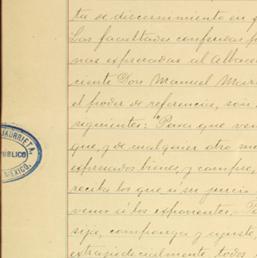 ta de discernimiento en f
Las facultades conferidas p
nas expresadas al Albacea
ciente Don Manuel Mar
el poder de referencia, son
siguientes: "Para que ven
que, y de cualquier otro mo
expresados bienes, y compre,
reciba los que á su juicio
venir á los exponentes. Pa
sija, componga y ajuste,
extrajudicialmente todos
JAURRIETA.
PUBLICO
MEXICO.